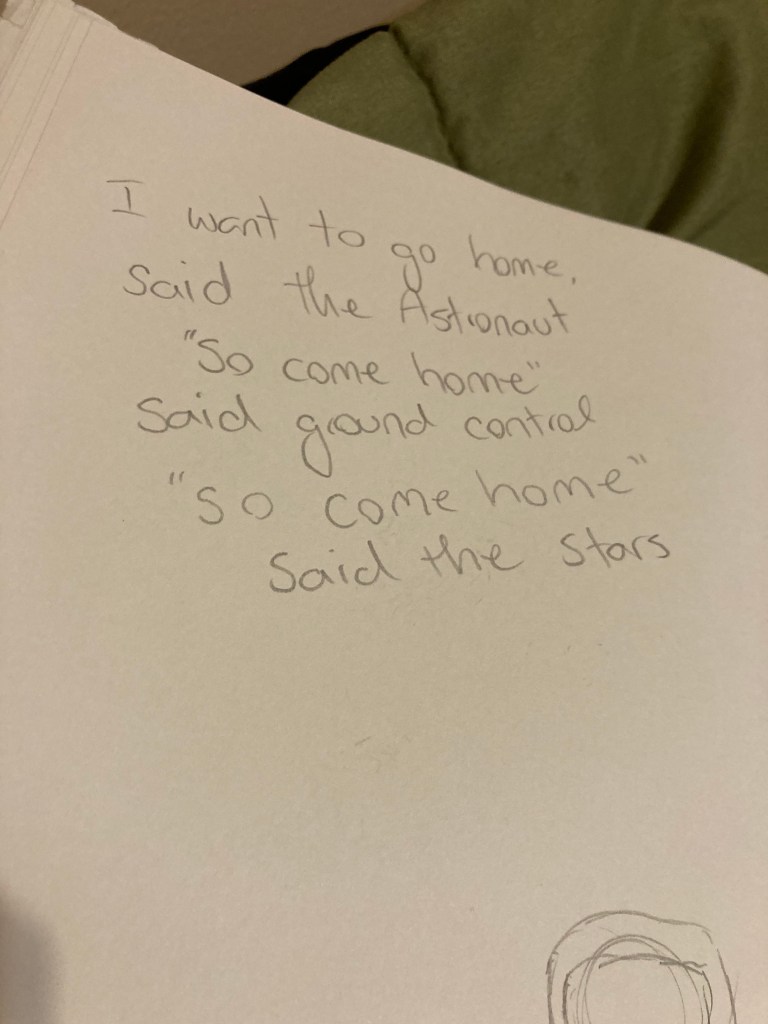 I want to go home,
said the Astronaut
"So come home"
said ground control
"So come home"
said the stars